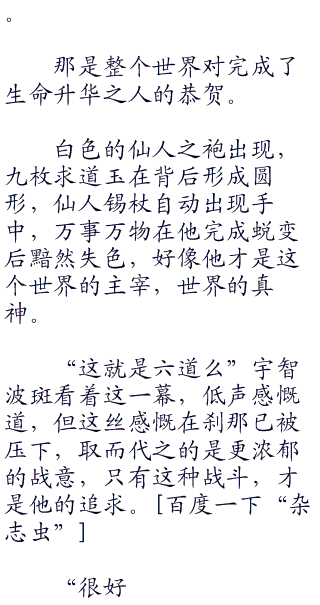 。
那是整个世界对完成了
生命升华之人的恭贺。
白色的仙人之袍出现，
九枚求道玉在背后形成圆
形，仙人锡杖自动出现手
中，万事万物在他完成蜕变
后黯然失色，好像他才是这
个世界的主宰，世界的真
神。
“这就是六道么”宇智
波斑看着这一幕，低声感慨
道，但这丝感慨在刹那已被
压下，取而代之的是更浓郁
的战意，只有这种战斗，才
是他的追求。[百度一下“杂
志虫”]
“很好